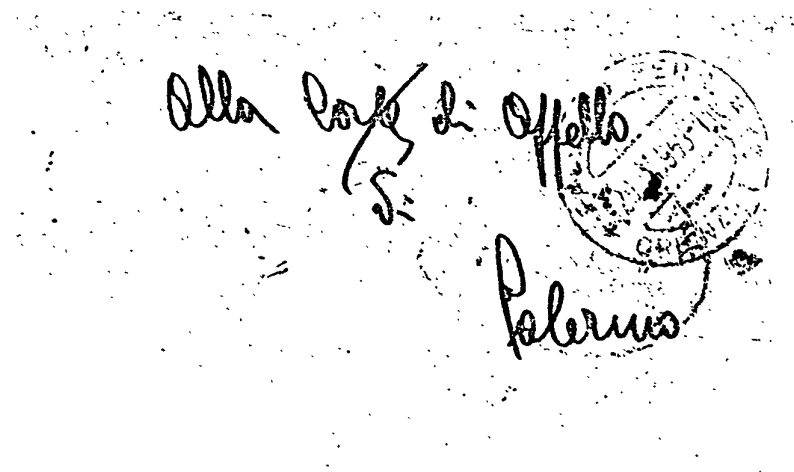 Alla Corte di Appello
di
Palermo